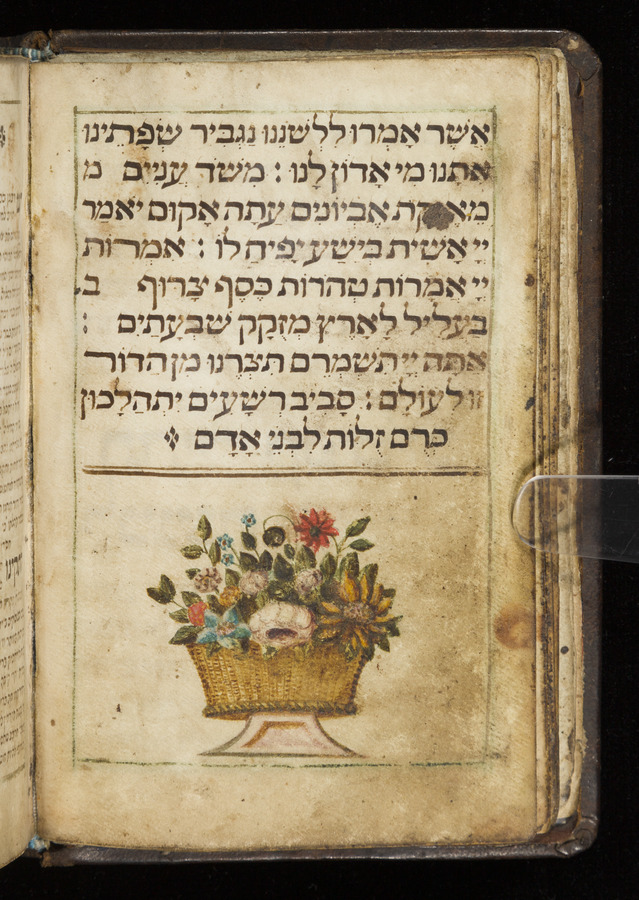 אֲשֶׁר אָמְרוּ לִלְשֹׁנֵנוּ נַגְבִּיר שְׂפָתֵינוּ
אִתָּנוּ מִי אָדוֹן לָנוּ : מִשֹּׁד עֲנִיִּים מ
מֵאֶנְקַת אֶבְיוֹנִים עַתָּה אָקוּם יֹאמַר
יְיָ אָשִׁית בְּיֵשַׁע יָפִיחַ לוֹ : אִמְרוֹת
יְיָ אֲמָרוֹת טְהֹרוֹת כֶּסֶף צָרוּף ב
בַּעֲלִיל לָאָרֶץ מְזֻקָּק שִׁבְעָתָיִם :
אַתָּה יְיָ תִּשְׁמְרֵם תִּצְּרֶנּוּ מִן הַדּוֹר
זוּ לְעוֹלָם : סָבִיב רְשָׁעִים יִתְהַלָּכוּן
כְּרֻם זֻלּוּת לִבְנֵי אָדָם